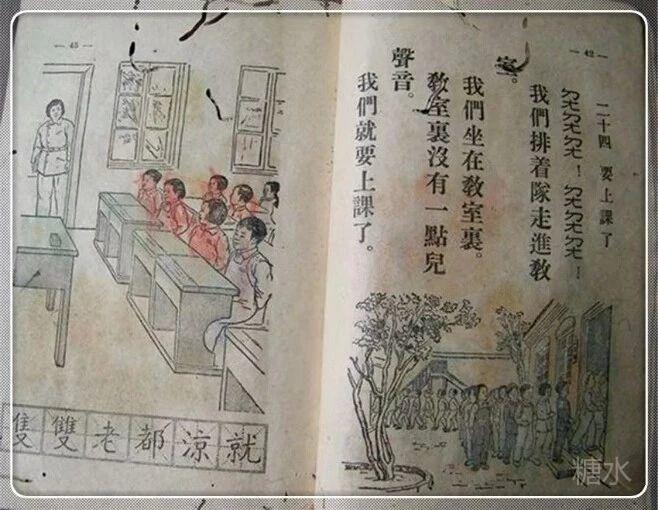 — 42 —
二十四 要上課了
ㄉㄤㄉㄤㄉㄤ！ㄉㄤㄉㄤㄉㄤ！
我們排着隊走進敎
室。
我們坐在敎室裏。
敎室裏沒有一點兒
聲音。
我們就要上課了。
— 43 —
就涼都老雙隻
糖水